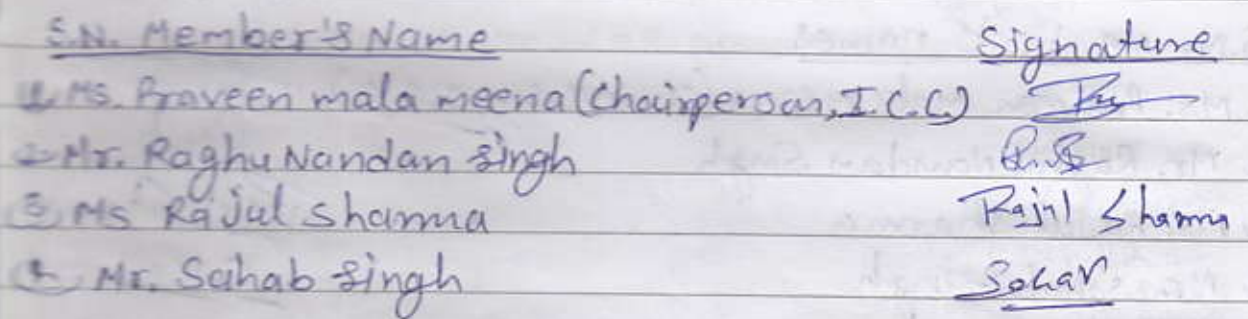 S.N. Member's Name Signature
1. Ms. Praveen mala meena (Chairperson, I.C.C)
2. Mr. Raghu Nandan Singh
3. Ms Rajul Sharma Rajul Sharma
4. Mr. Sahab Singh